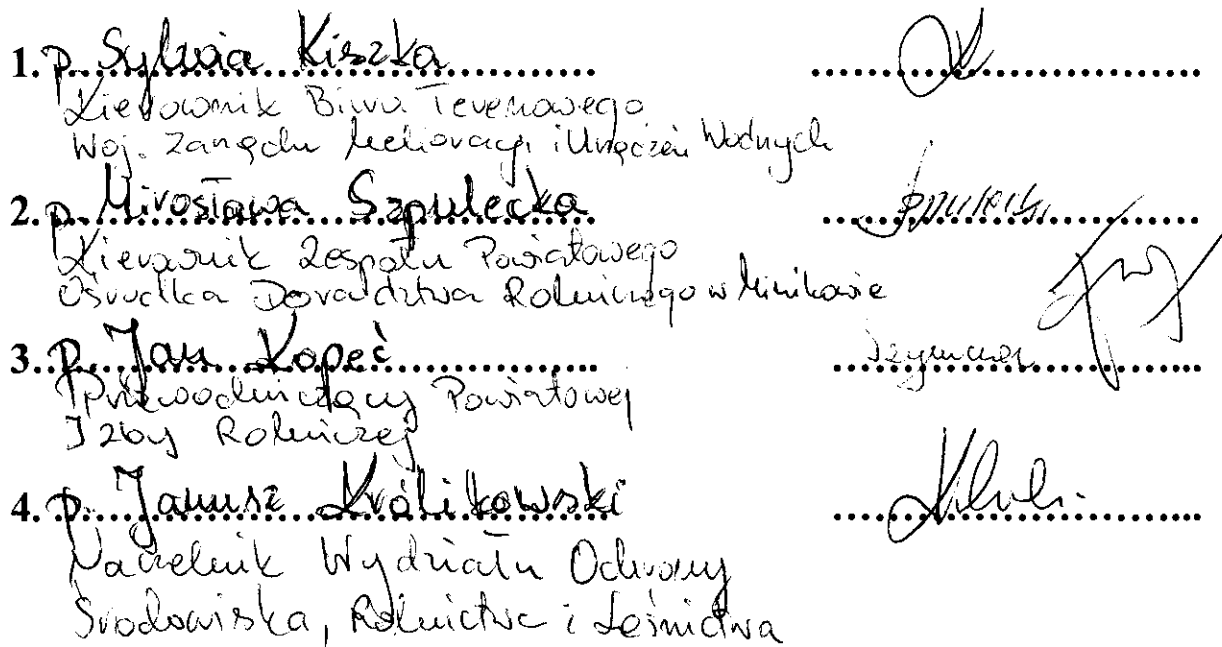 1. p. Sylwia Kiszka
Kierownik Biura Terenowego
Woj. Zarządu Melioracji i Urządzeń Wodnych
2. p. Mirosława Szpulecka
Kierownik Zespołu Powiatowego
Ośrodka Doradztwa Rolniczego w Minikowie
3. p. Jan Kopeć
Przewodniczący Powiatowej
Izby Rolniczej
4. p. Janusz Królikowski
Naczelnik Wydziału Ochrony
Środowiska, Rolnictwa i Leśnictwa